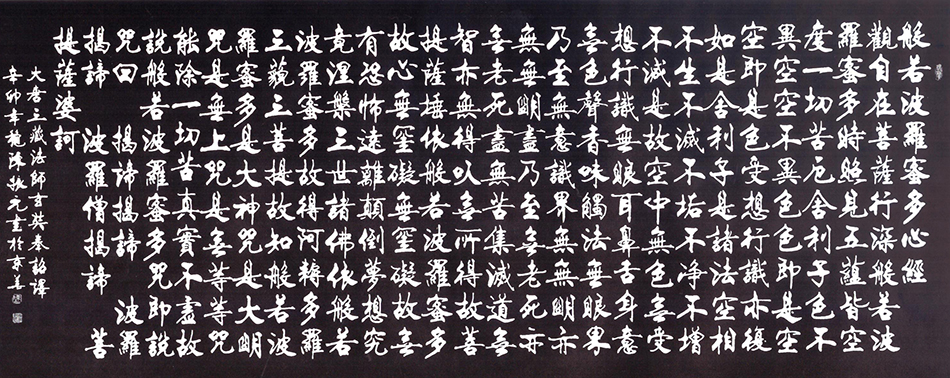 般若波羅蜜多心經
觀自在菩薩行深般若波
羅蜜多時照見五蘊皆空
度一切苦厄舍利子色不
異空空不異色色即是空
空即是色受想行識亦復
如是舍利子是諸法空相
不生不滅不垢不净不增
不減是故空中無色無受
想行識無眼耳鼻舌身意
無色聲香味觸法無眼界
乃至無意識界無無明亦
無無明盡乃至無老死亦
無老死盡無苦集滅道無
智亦無得以無所得故菩
提薩埵依般若波羅蜜多
故心無罣礙無罣礙故無
有恐怖遠離顛倒夢想究
竟涅槃三世諸佛依般若
波羅蜜多故得阿耨多羅
三藐三菩提故知般若波
羅蜜多是大神咒是大明
咒是無上咒是無等等咒
能除一切苦真實不虛故
說般若波羅蜜多咒即說
咒曰 揭諦揭諦 波羅
揭諦 波羅僧揭諦 菩
提薩婆訶
大唐三藏法師玄奘奉詔譯
辛卯年 陳 元書於京